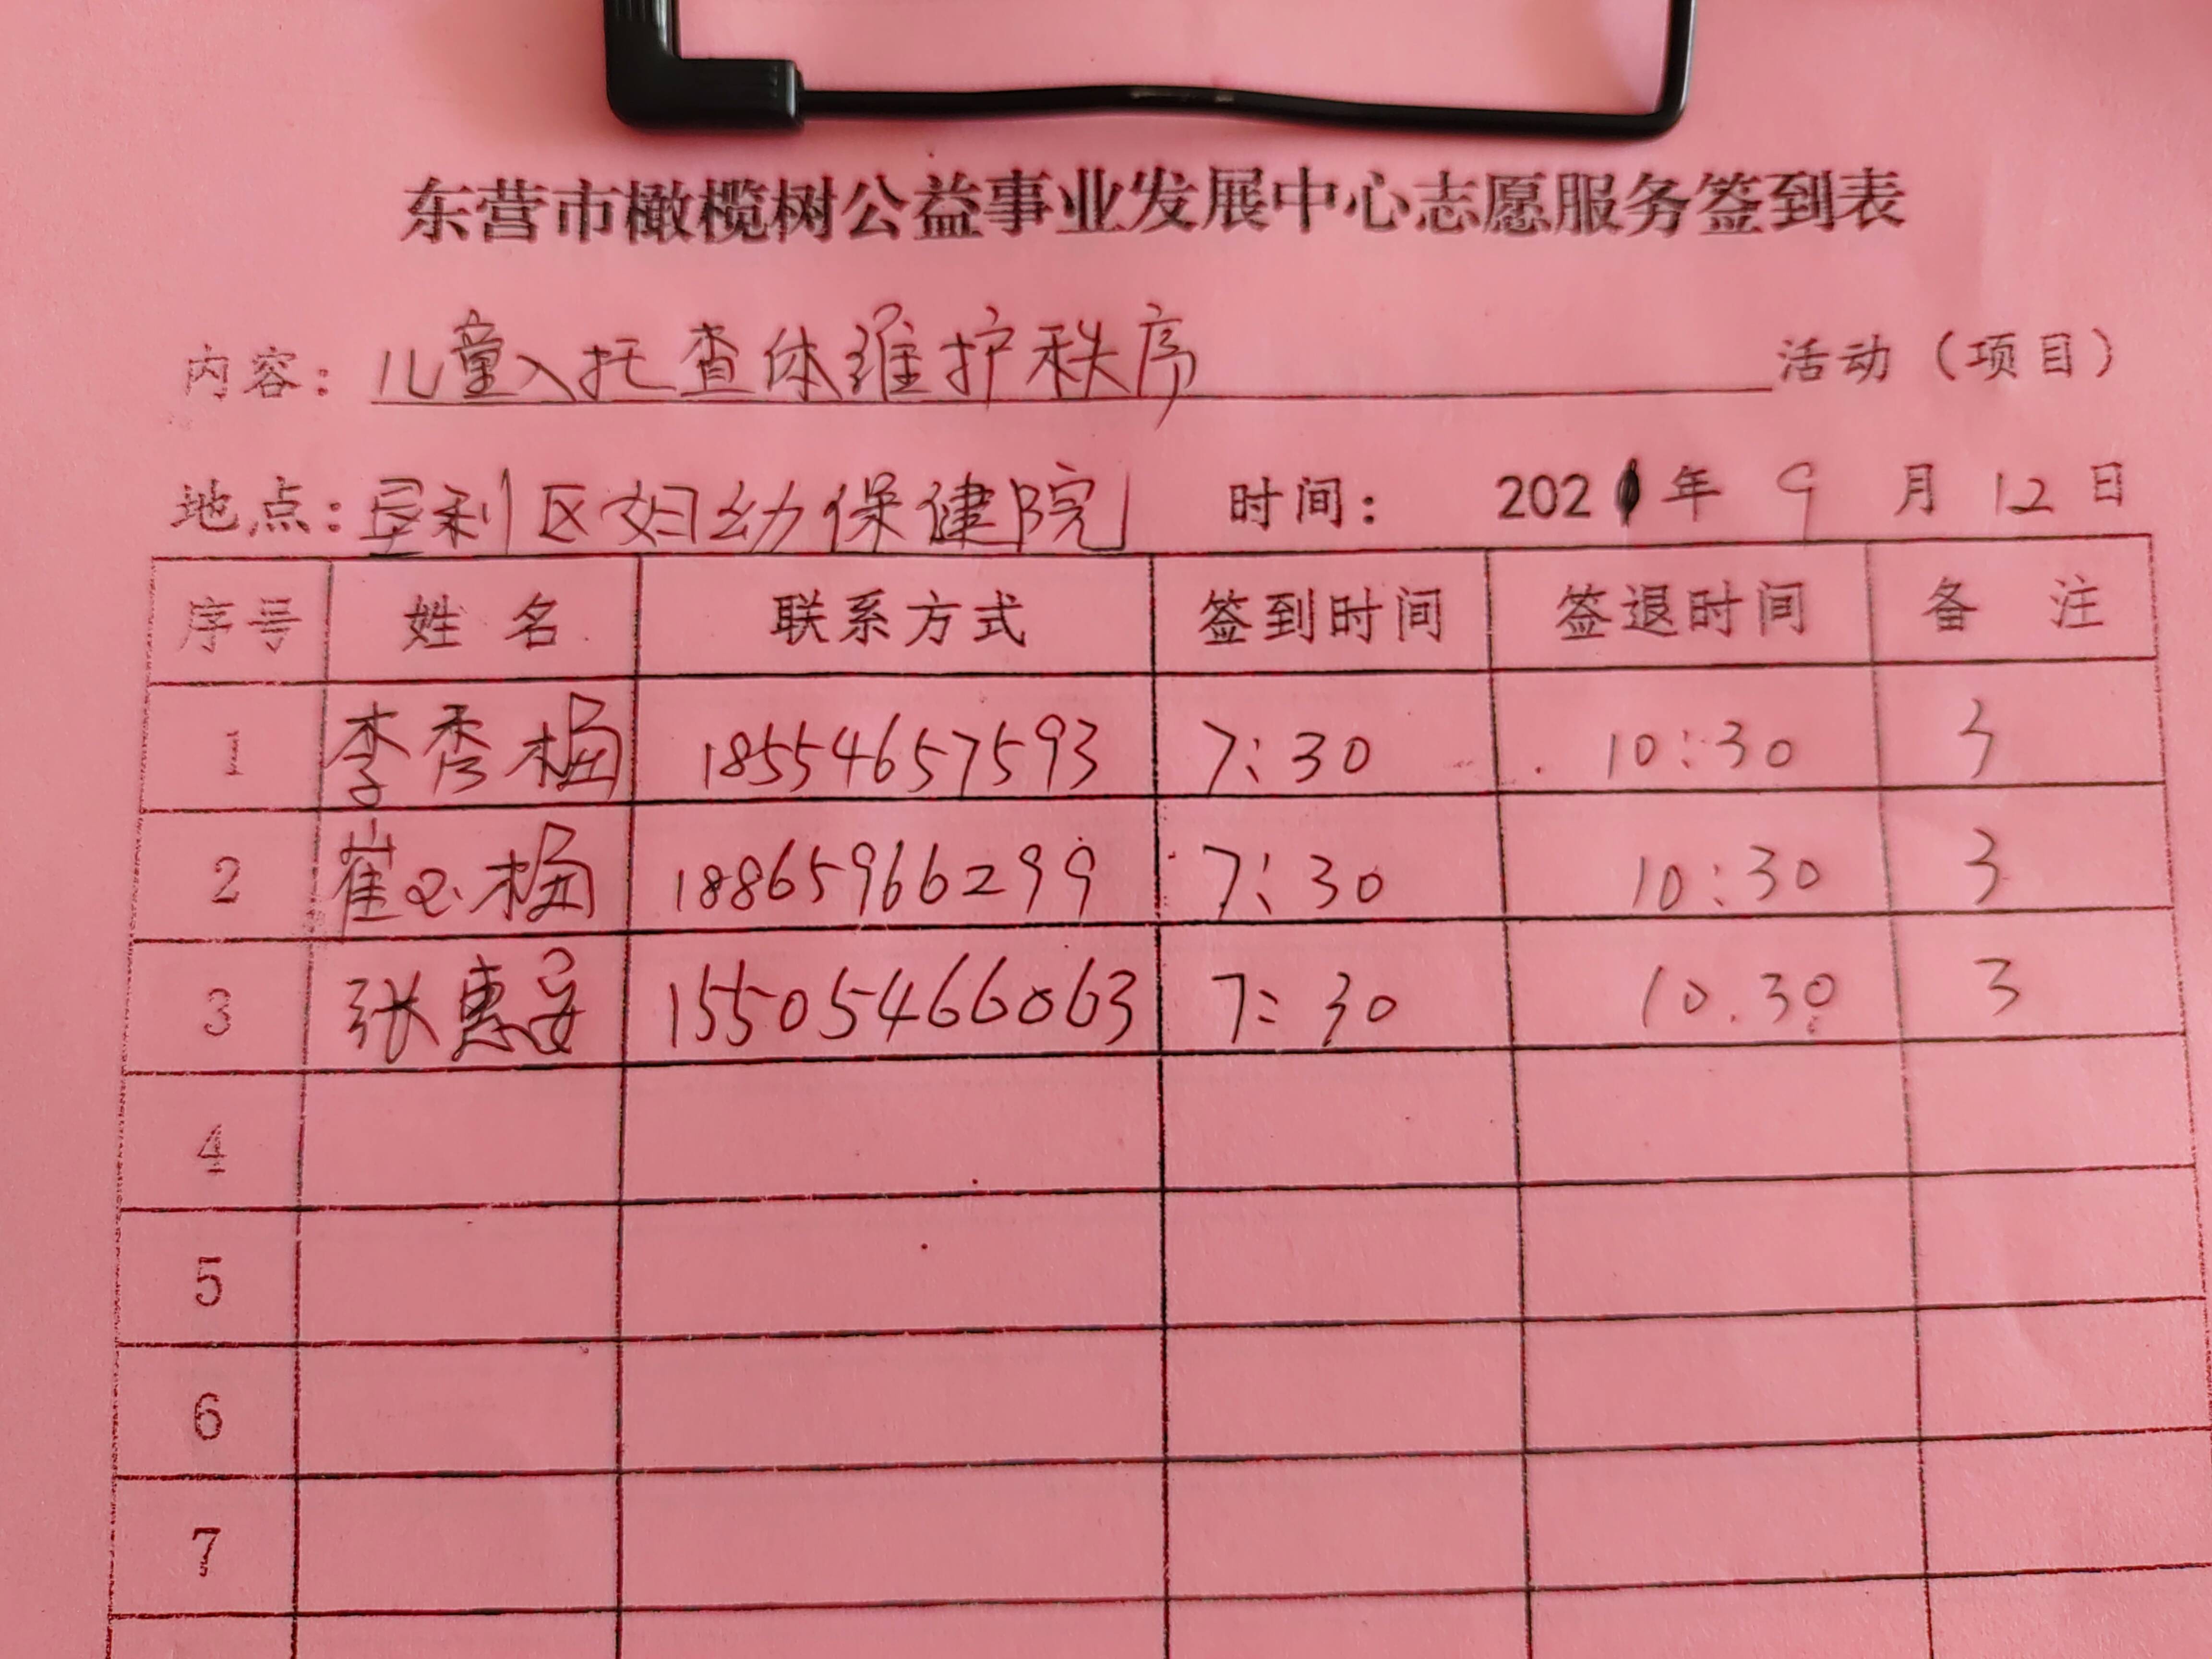 东营市橄榄树公益事业发展中心志愿服务签到表
内容：儿童入托查体维护秩序 活动（项目）
地点：垦利区妇幼保健院 时间： 2021年 9 月 12 日
序号 姓 名 联系方式 签到时间 签退时间 备 注
1 李秀梅 18554657593 7:30 10:30 3
2 崔玉梅 18865966299 7:30 10:30 3
3 张惠 15505466063 7:30 10.30 3
4
5
6
7